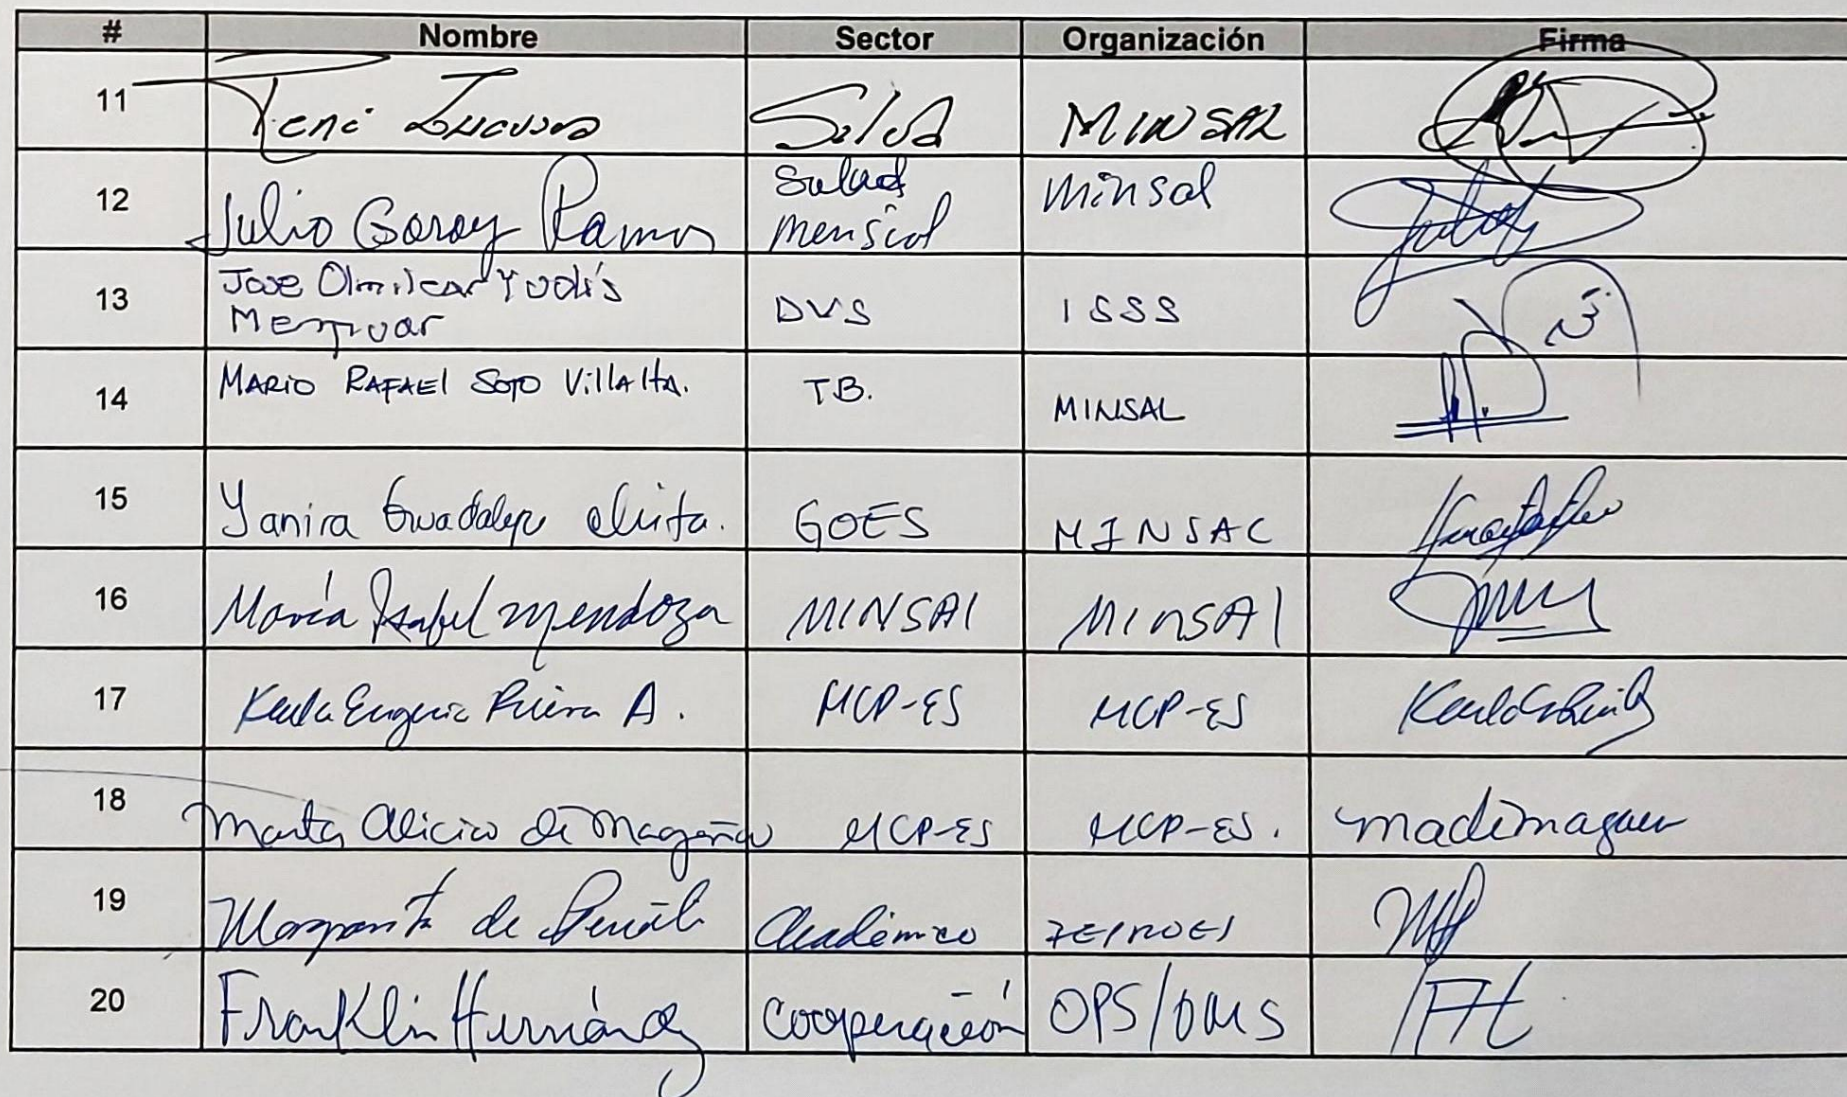 # Nombre Sector Organización Firma
11 René Salud MINSAL
12 Julio Garay Ramos Salud mensial Minsal
13 Jose Olmilcar Yudis DVS ISSS
Menjivar
14 MARIO RAFAEl SOTO VillAltA. T.B. MINSAL
15 Yanira Guadalupe GOES MINSAL
16 María Isabel Mendoza MINSAl MINSAl
17 Karla Eugenia Rivera A. MCP-ES MCP-ES
18 Marta Alicia de Magaña MCP-ES MCP-ES.
19 Margarita de Académico
20 Franklin Hernández Cooperación OPS/OMS